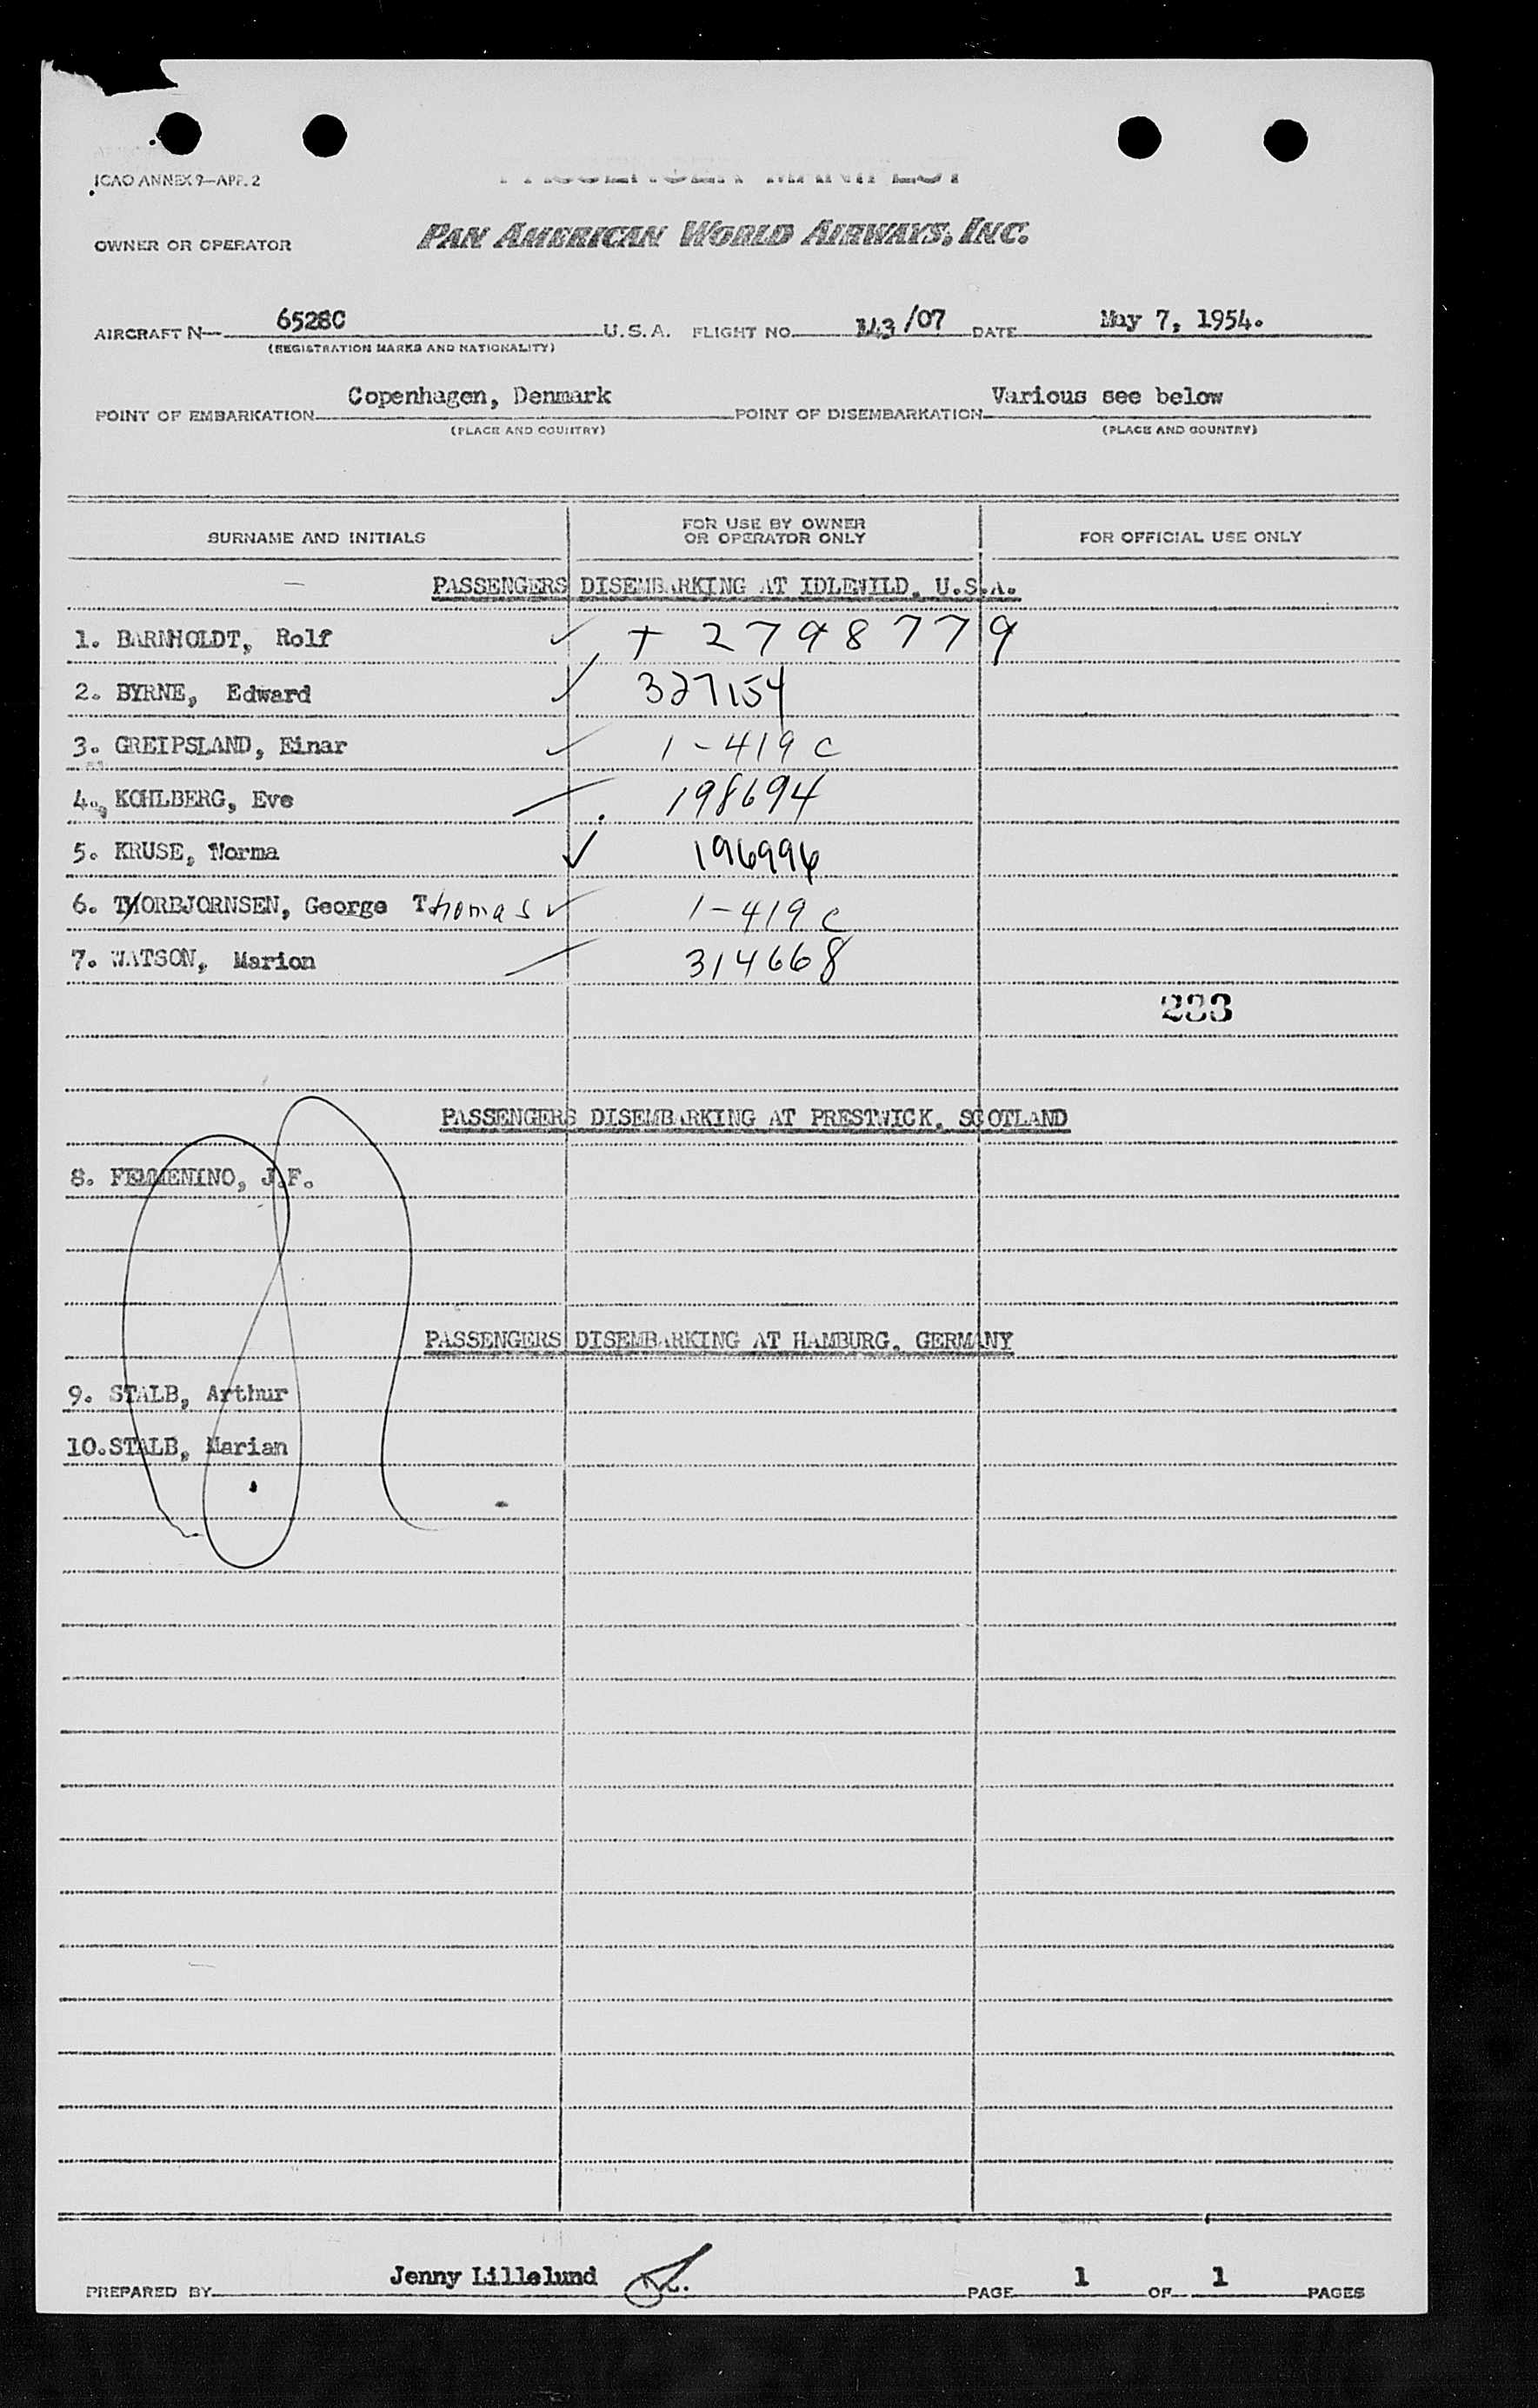 ICAO ANNEX 9—APP. 2
PASSENGER MANIFEST
OWNER OR OPERATOR PAN AMERICAN WORLD AIRWAYS, INC.
AIRCRAFT N— 6528C U.S.A. FLIGHT NO. 143/07 DATE May 7, 1954.
(REGISTRATION MARKS AND NATIONALITY)
POINT OF EMBARKATION Copenhagen, Denmark POINT OF DISEMBARKATION Various see below
(PLACE AND COUNTRY) (PLACE AND COUNTRY)
SURNAME AND INITIALS FOR USE BY OWNER OR OPERATOR ONLY FOR OFFICIAL USE ONLY
PASSENGERS DISEMBARKING AT IDLEWILD, U.S.A.
1. BARNHOLDT, Rolf ✓ + 2798779
2. BYRNE, Edward ✓ 327154
3. GREIPSLAND, Einar ✓ 1-419 C
4. KOHLBERG, Eve 198694
5. KRUSE, Norma ✓ 196996
6. THORBJORNSEN, George Thomas ✓ 1-419 C
7. WATSON, Marion 314668
233
PASSENGERS DISEMBARKING AT PRESTWICK, SCOTLAND
8. FEMMENINO, J.F.
PASSENGERS DISEMBARKING AT HAMBURG, GERMANY
9. STALB, Arthur
10. STALB, Marian
PREPARED BY Jenny Lillelund PAGE 1 OF 1 PAGES